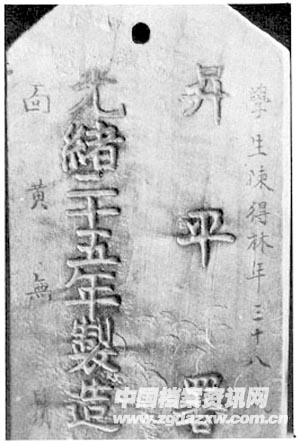 學生陳得林年三十八
昇平署
光緒二十五年製造
面黄無
中国档案资讯网
www.zgdazxw.com.cn